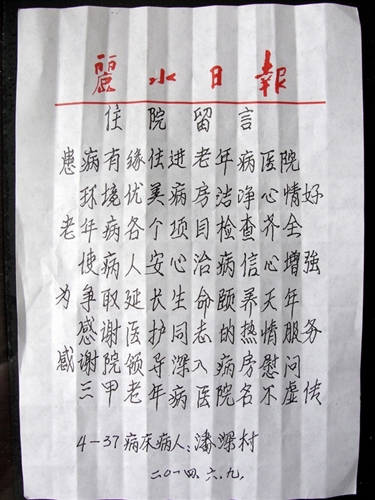 麗水日報
住院留言
患病有缘住进老年病医院
环境优美病房洁净心情好
老年病各个项目检查齐全
使病人安心治病信心增强
为争取延长生命颐养天年
感谢医护同志的热情服务
感谢院领导深入病房慰问
三甲老年病医院名不虚传
4-37病床病人:潘梁村
二〇一四.六.九.